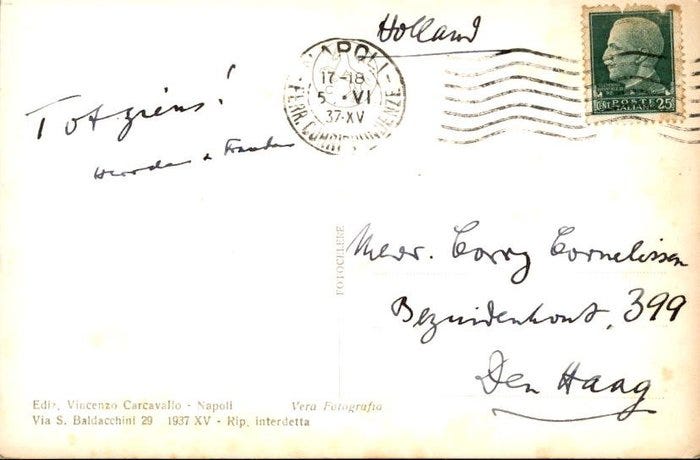 Holland
NAPOLI
17-18
5 · VI
37-XV
FERR. CORRISPONDENZE
POSTE
ITALIANE
CENT. 25
Totziens!
Mevr. Corry Cornelissen
Bezuidenhout, 399
Den Haag
FOTOCELERE
Ediz. Vincenzo Carcavallo - Napoli
Vera Fotografia
Via S. Baldacchini 29 1937 XV - Rip. interdetta